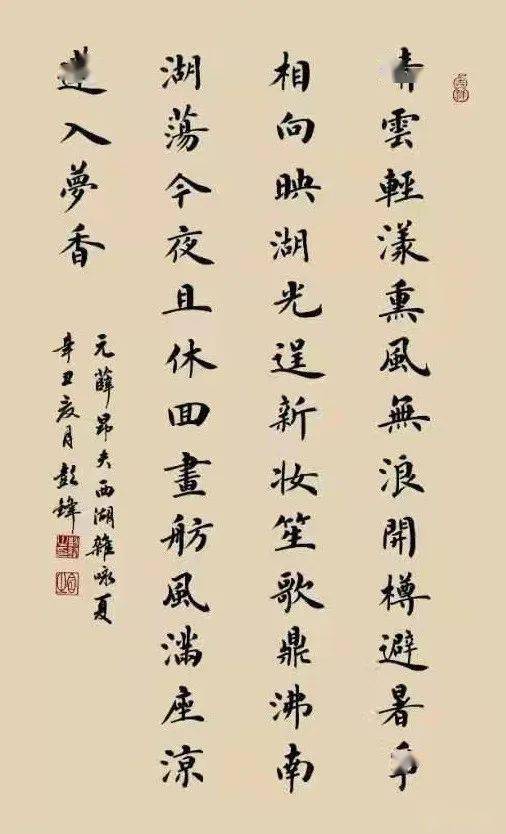 晴雲輕漾熏風無浪開樽避暑爭
相向映湖光逞新妆笙歌鼎沸南
湖蕩今夜且休囬畫舫風滿座凉
蓮入夢香
元薛昂夫西湖雜咏夏
辛丑夏月彭鋒